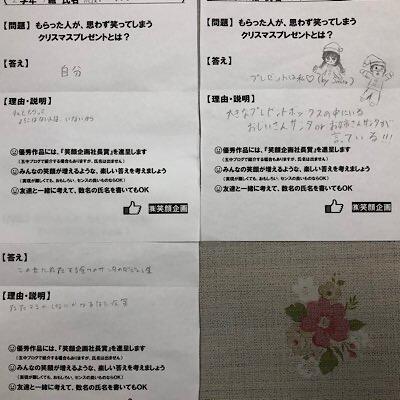 【問題】もらった人が、思わず笑ってしまう
クリスマスプレゼントとは？
【答え】
自分
【理由・説明】
優秀作品には、『笑顔企画社長賞』を進呈します
(五中ブログで紹介する場合もありますが、氏名は出ません)
みんなの笑顔が増えるような、楽しい答えを考えましょう
(実現が難しくても、おもしろい、センスの良いものならOK)
友達と一緒に考えて、数名の氏名を書いてもOK
㈱笑顔企画
【問題】もらった人が、思わず笑ってしまう
クリスマスプレゼントとは？
【答え】
プレゼントは私♡(by Santa)
【理由・説明】
大きなプレゼントボックスの中にいる
おじいさんサンタが
言っている!!!
優秀作品には、『笑顔企画社長賞』を進呈します
(五中ブログで紹介する場合もありますが、氏名は出ません)
みんなの笑顔が増えるような、楽しい答えを考えましょう
(実現が難しくても、おもしろい、センスの良いものならOK)
友達と一緒に考えて、数名の氏名を書いてもOK
㈱笑顔企画
【答え】
【理由・説明】
優秀作品には、『笑顔企画社長賞』を進呈します
(五中ブログで紹介する場合もありますが、氏名は出ません)
みんなの笑顔が増えるような、楽しい答えを考えましょう
(実現が難しくても、おもしろい、センスの良いものならOK)
友達と一緒に考えて、数名の氏名を書いてもOK